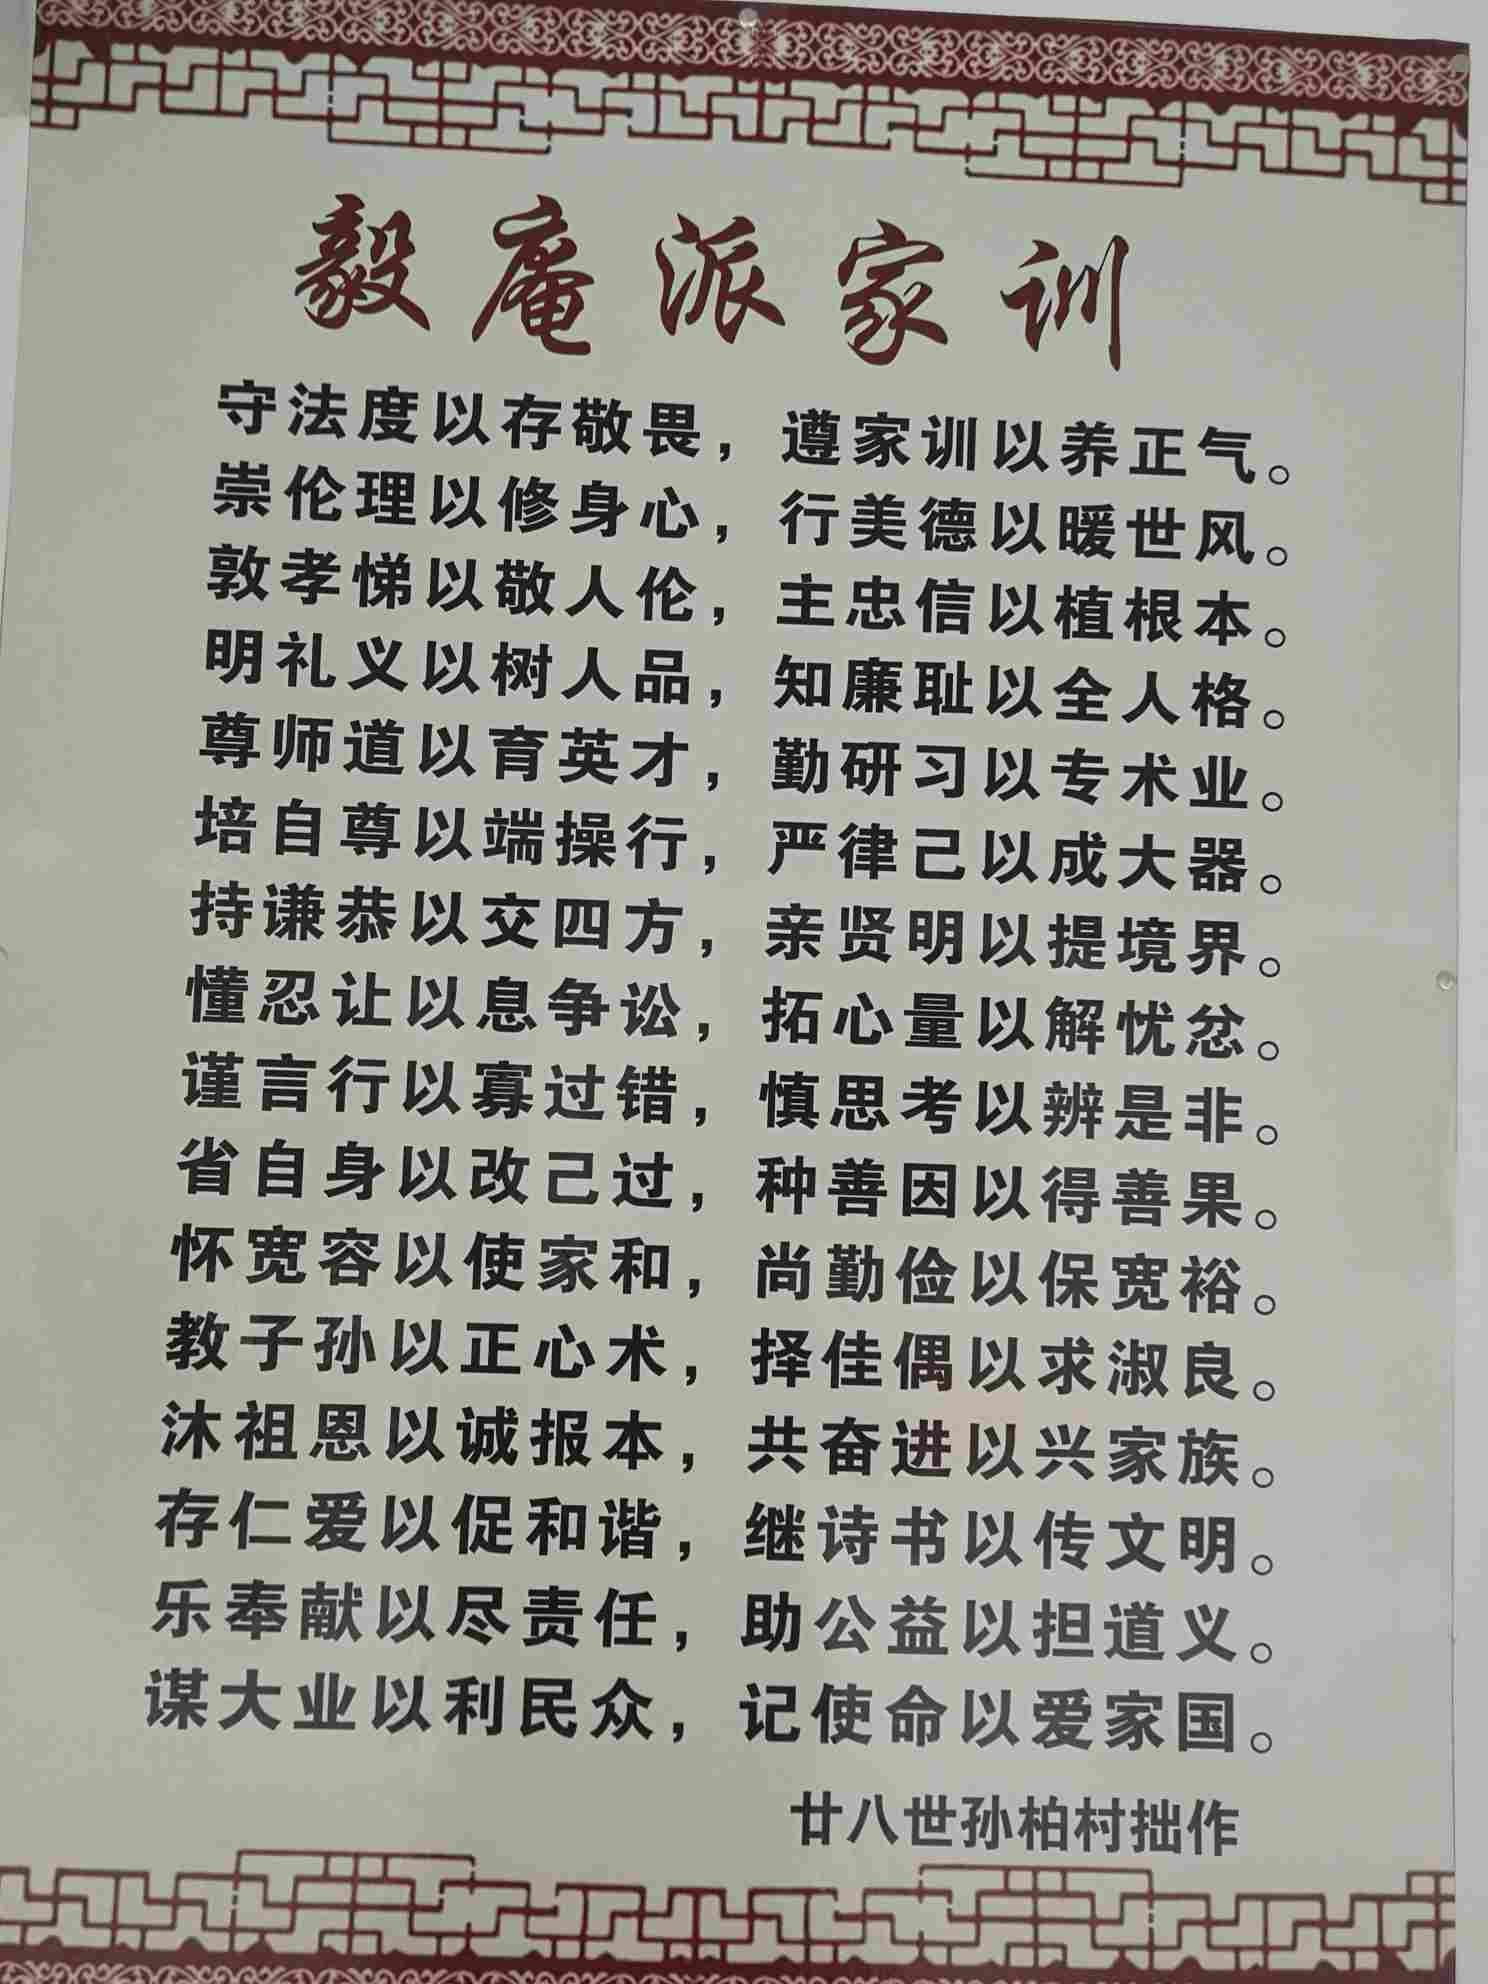 毅庵派家训
守法度以存敬畏，遵家训以养正气。
崇伦理以修身心，行美德以暖世风。
敦孝悌以敬人伦，主忠信以植根本。
明礼义以树人品，知廉耻以全人格。
尊师道以育英才，勤研习以专术业。
培自尊以端操行，严律己以成大器。
持谦恭以交四方，亲贤明以提境界。
懂忍让以息争讼，拓心量以解忧忿。
谨言行以寡过错，慎思考以辨是非。
省自身以改己过，种善因以得善果。
怀宽容以使家和，尚勤俭以保宽裕。
教子孙以正心术，择佳偶以求淑良。
沐祖恩以诚报本，共奋进以兴家族。
存仁爱以促和谐，继诗书以传文明。
乐奉献以尽责任，助公益以担道义。
谋大业以利民众，记使命以爱家国。
廿八世孙柏村拙作